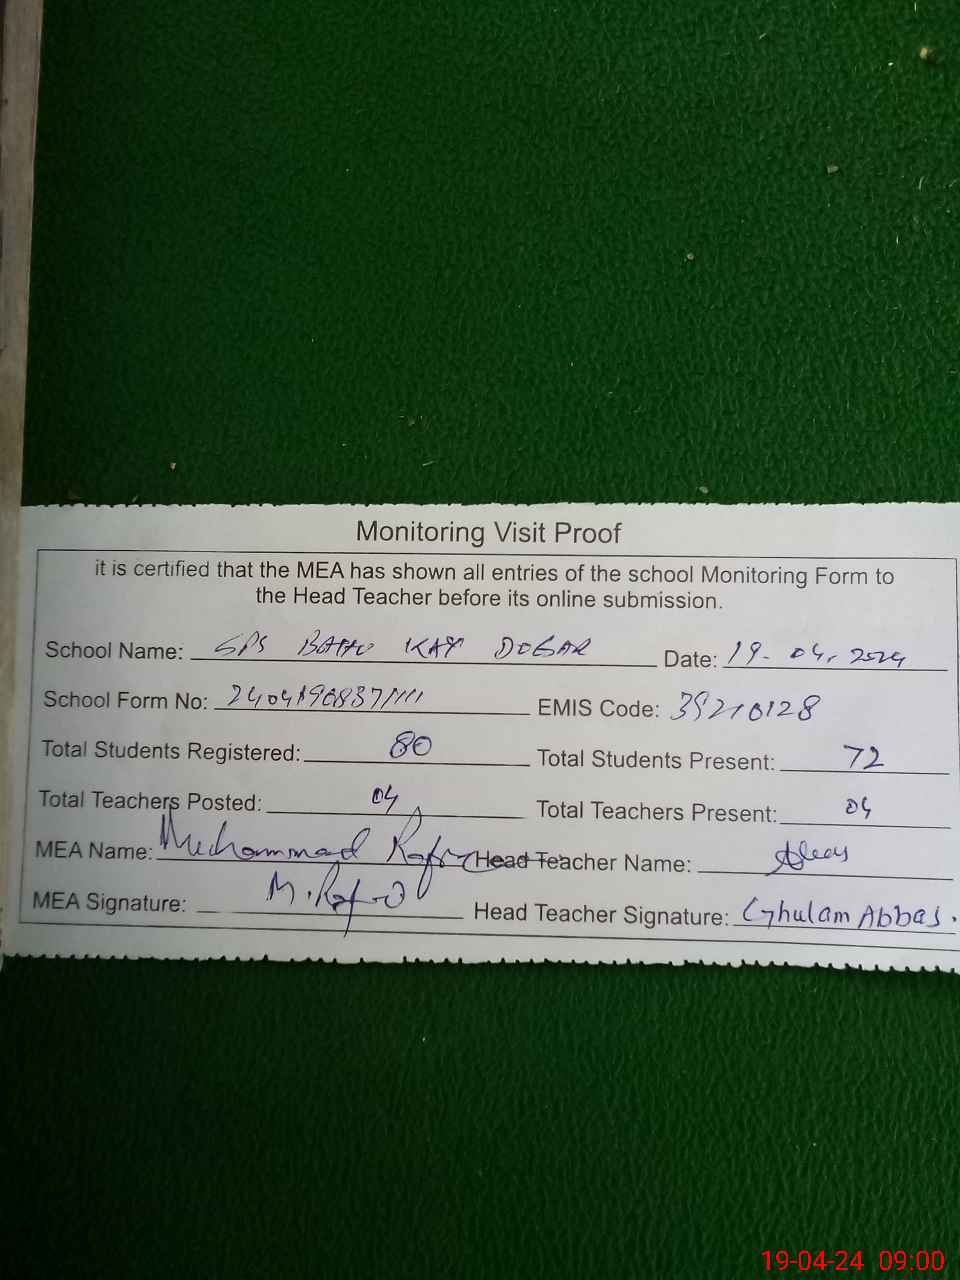 Monitoring Visit Proof
it is certified that the MEA has shown all entries of the school Monitoring Form to
the Head Teacher before its online submission.
School Name: GPS BAHU KAY DOGAR Date: 19-04-2024
School Form No: EMIS Code: 39210128
Total Students Registered: 80 Total Students Present: 72
Total Teachers Posted: 04 Total Teachers Present: 04
MEA Name: Muhammad Head Teacher Name:
MEA Signature: Head Teacher Signature: Ghulam Abbas.
19-04-24 09:00